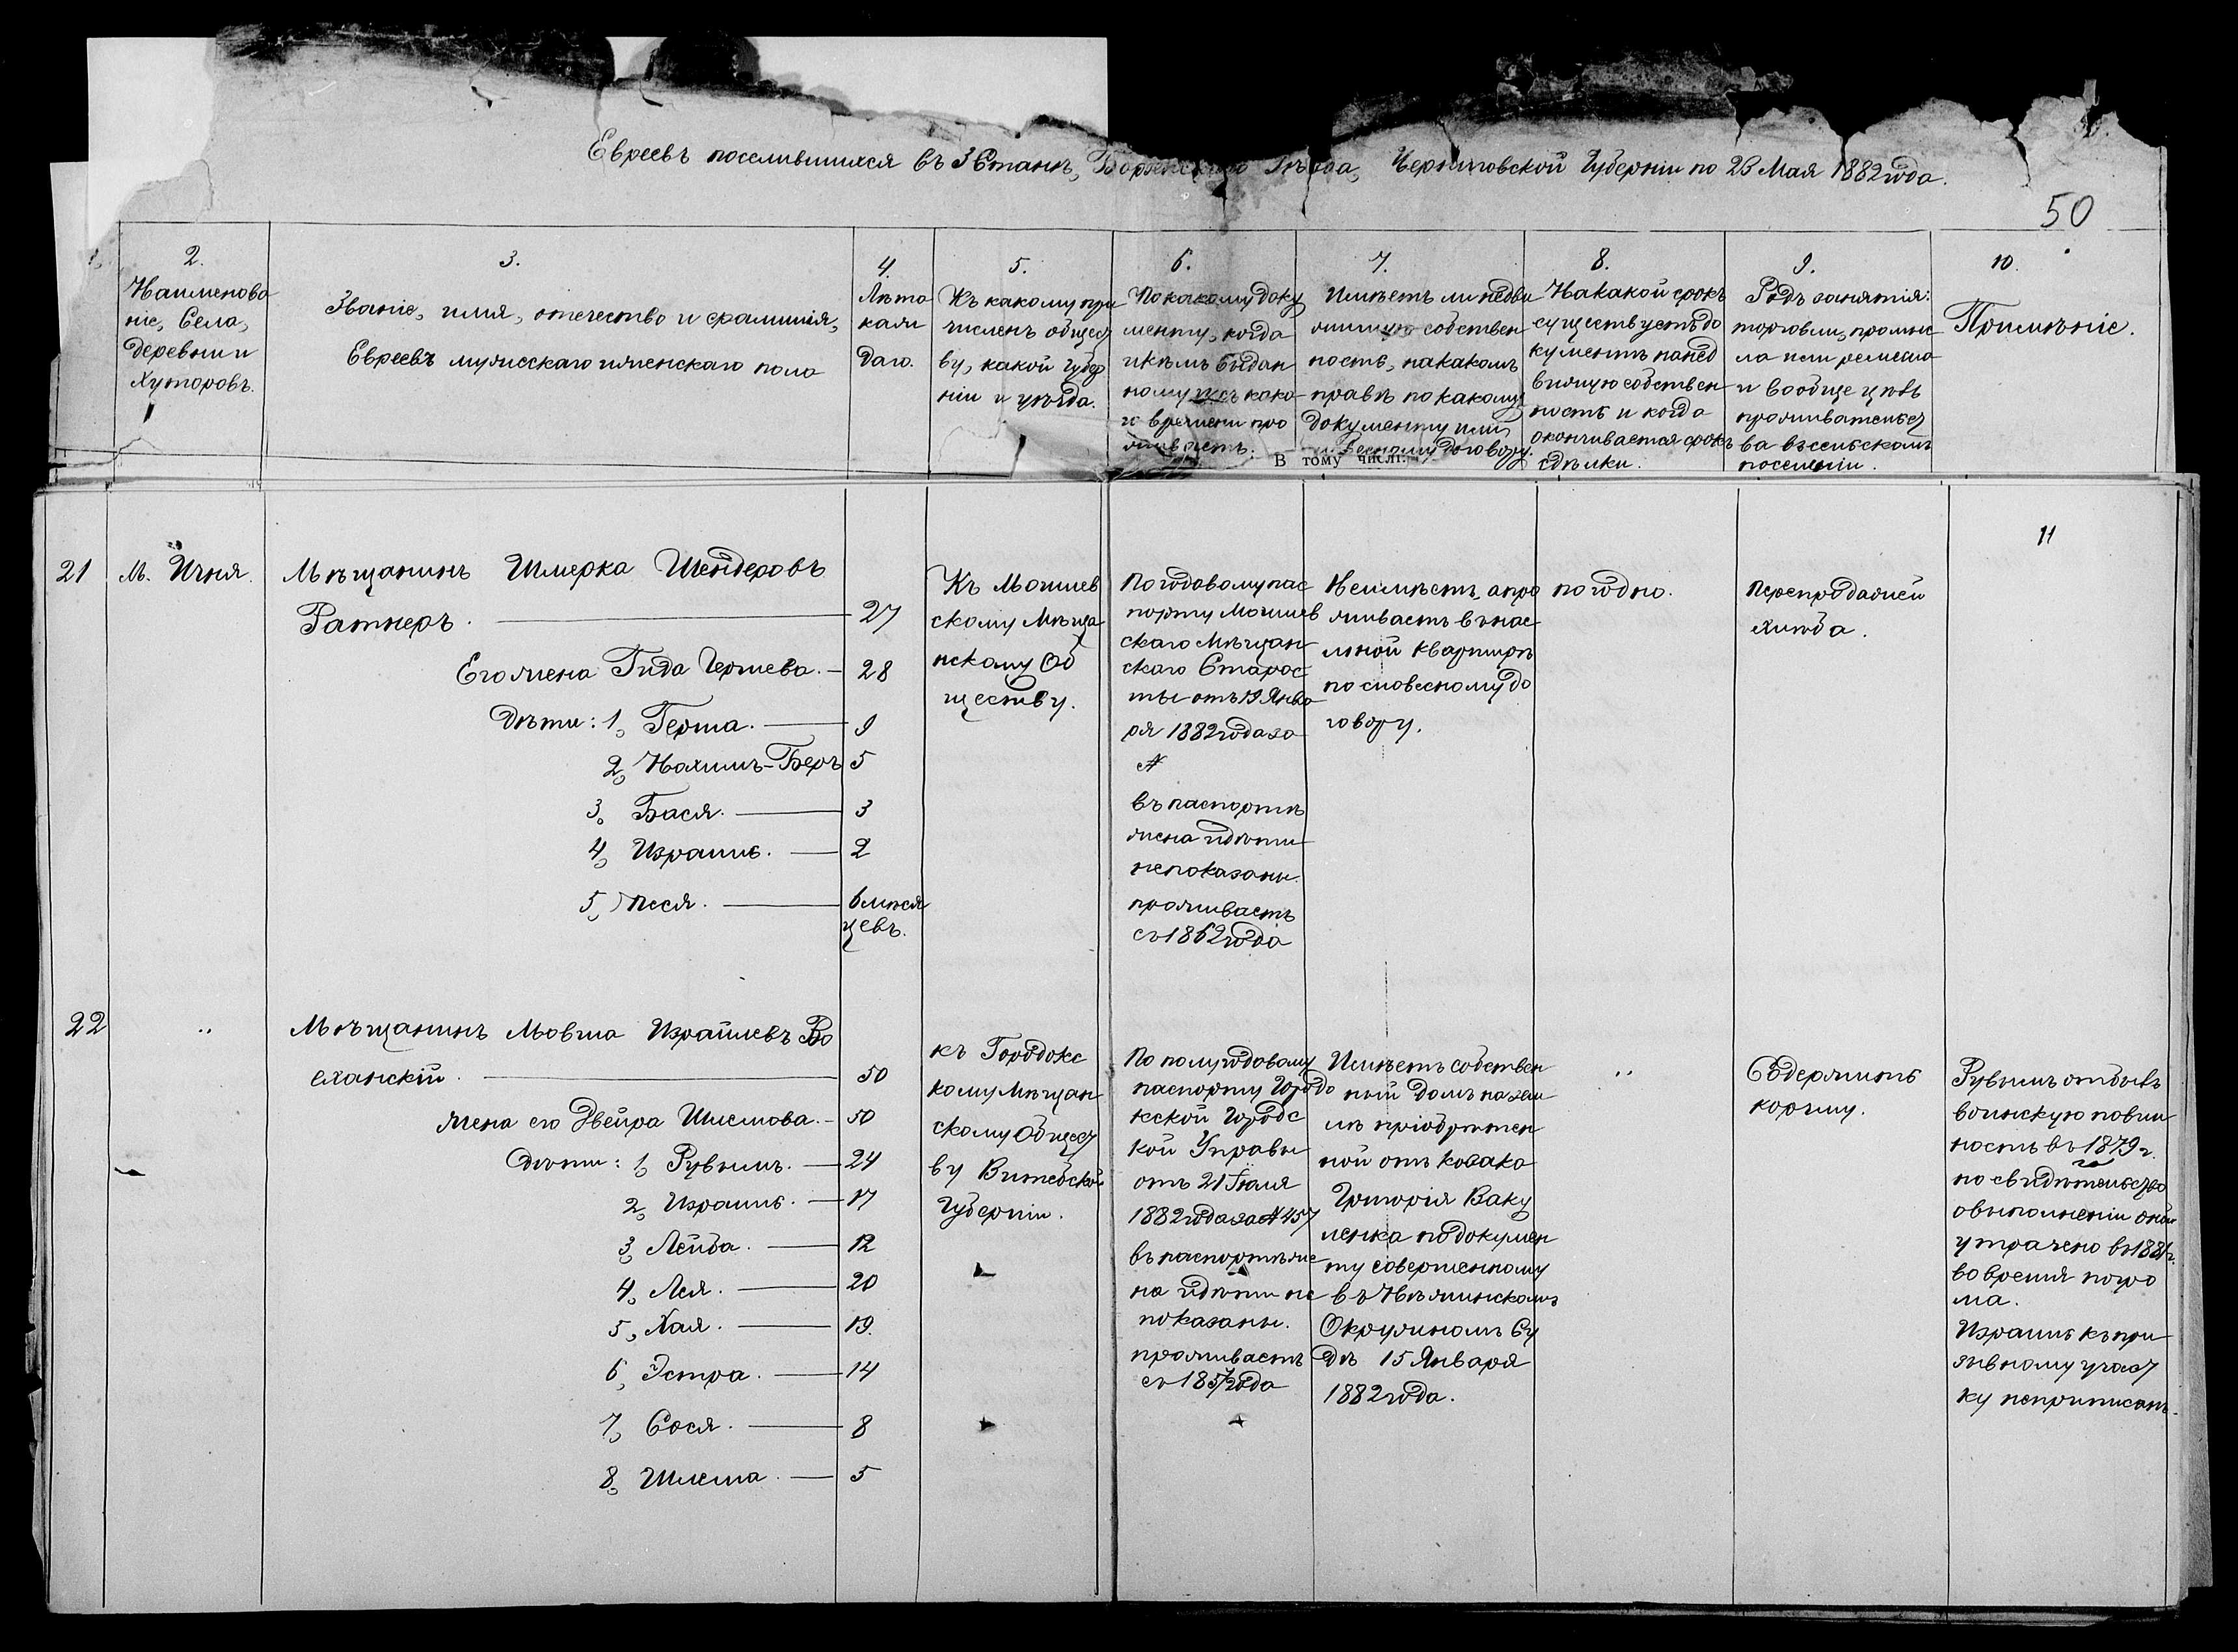 Евреевъ поселившихся въ 3 Станѣ, Борзенскаго Уѣзда, Черниговской Губерніи по 23 Мая 1882 года.
50
2.
Наименова
ніе, Села,
Деревни и
Хуторовъ.
3.
Званіе, имя, отечество и фамилія,
Евреевъ мужескаго и женскаго пола
4.
Лѣта
кажи
даго.
5.
Къ какому при
численъ общест
ву, какой губер
ніи и уѣзда.
6.
По какому доку
менту, когда
и кѣмъ выдан
ному и съ како
го времени про
живаетъ.
7.
Имѣетъ ли недви
жимую собствен
ность, на какомъ
правѣ по какому
документу или
словесному договору.
В тому числѣ:
8.
На какой срокъ
существуетъ до
кументъ на нед
вижую собствен
ность и когда
оканчивается срокъ
сдѣлки.
9.
Родъ занятія:
торговли, промыс
ла или ремесла
и вообще цѣль
прожиательст
ва въ сельскомъ
поселеніи.
10.
Примѣніе.
11
21
М. Ичня.
Мѣщанинъ Шмерка Шендеровъ
Ратнеръ. 27
Его жена Гида Гершева. 28
Дѣти: 1, Герша. 9
2, Нахимъ-Беръ 5
3, Бася. 3
4, Израиль. 2
5, Песя. 6 мѣся
цевъ.
Къ Могилев
скому Мѣща
нскому Об
ществу.
По годовому пас
порту Могилев
скаго Мѣщан
скаго Старос
ты отъ 19 Янва
ря 1882 года за
№
въ паспортѣ
жена и дѣти
непоказаны.
проживаетъ
съ 1862 года
Неимѣетъ, а про
живаетъ в нае
мной квартирѣ
по словесному до
говору.
погодно.
перепродажей
хлѣба.
22
"
Мѣщанинъ Мовша Израилевъ Во
ханскій. 50
Жена его Двейра Шлемова. 50
Дѣти: 1, Рувимъ. 24
2, Израиль. 17
3, Лейба. 12
4, Лея. 20
5, Хая. 19.
6, Эстра. 14
7, Сося. 8
8, Шлема. 5
къ Городокс
кому Мѣщан
скому Общест
ву Витебской
Губерніи.
По полугодовому
паспорту Городо
кской Городс
кой Управы
отъ 21 Іюля
1882 года за № 457
въ паспортѣ же
на и дѣти не
показаны.
проживаетъ
съ 1857 года
Имѣетъ собствен
ный домъ на зем
лѣ пріобрѣтен
ной отъ козака
Григорія Ваку
ленка по докумен
ту совершенному
въ Нѣжинскомъ
Окружномъ Су
дѣ 15 Января
1882 года.
"
Содержитъ
корчму.
Рувимъ отбылъ
воинскую повин
ность въ 1879 г.
но свидѣтельство
о выполненіи оной
утрачено въ 1881 г.
во время погро
ма.
Израиль къ при
зывному участ
ку неприписанъ.